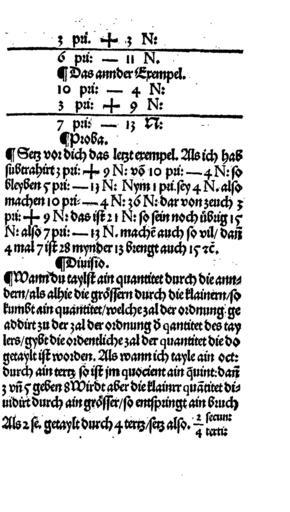 3 pri. + 3 N:
6 pri: — 11 N.
¶ Das annder Exempel.
10 pri: — 4 N:
3 pri: + 9 N:
7 pri: — 13 N:
¶ Proba.
¶ Setz vor dich das letzt exempel. Als ich hab
subtrahirt 3 pri: + 9 N: võ 10 pri: — 4 N: so
bleyben 5 pri: — 13 N: Nym 1 pri. sey 4 N. also
machen 10 pri: — 4 N: 36 N: dar von zeuch 3
pri: + 9 N: das ist 21 N: so sein noch übrig 15
N: also 7 pri: — 13 N. machē auch so vil/ dañ
4 mal 7 ist 28 mynder 13 brengt auch 15 ꝛc̃.
¶ Diuisio.
¶ Wann du taylst ain quantitet durch die ann-
dern/ als alhie die grössern durch die klainern/ so
kumbt ain quantitet/ welche zal der ordnung: ge
addirt zu der zal der ordnung ð qantitet des tay
lers/ gybt die ordenliche zal der quantitet die do
getaylt ist worden. Als wann ich tayle ain oct:
durch ain tertz so ist jm quocient ain quint: dañ
3 vñ 5 geben 8 Wirdt aber die klainer quãtitet di-
uidirt durch ain grösser/ so entspringt ain bruch
Als 2 se. getaylt durch 4 tertz/ setz also. 2 secun:
4 terti: